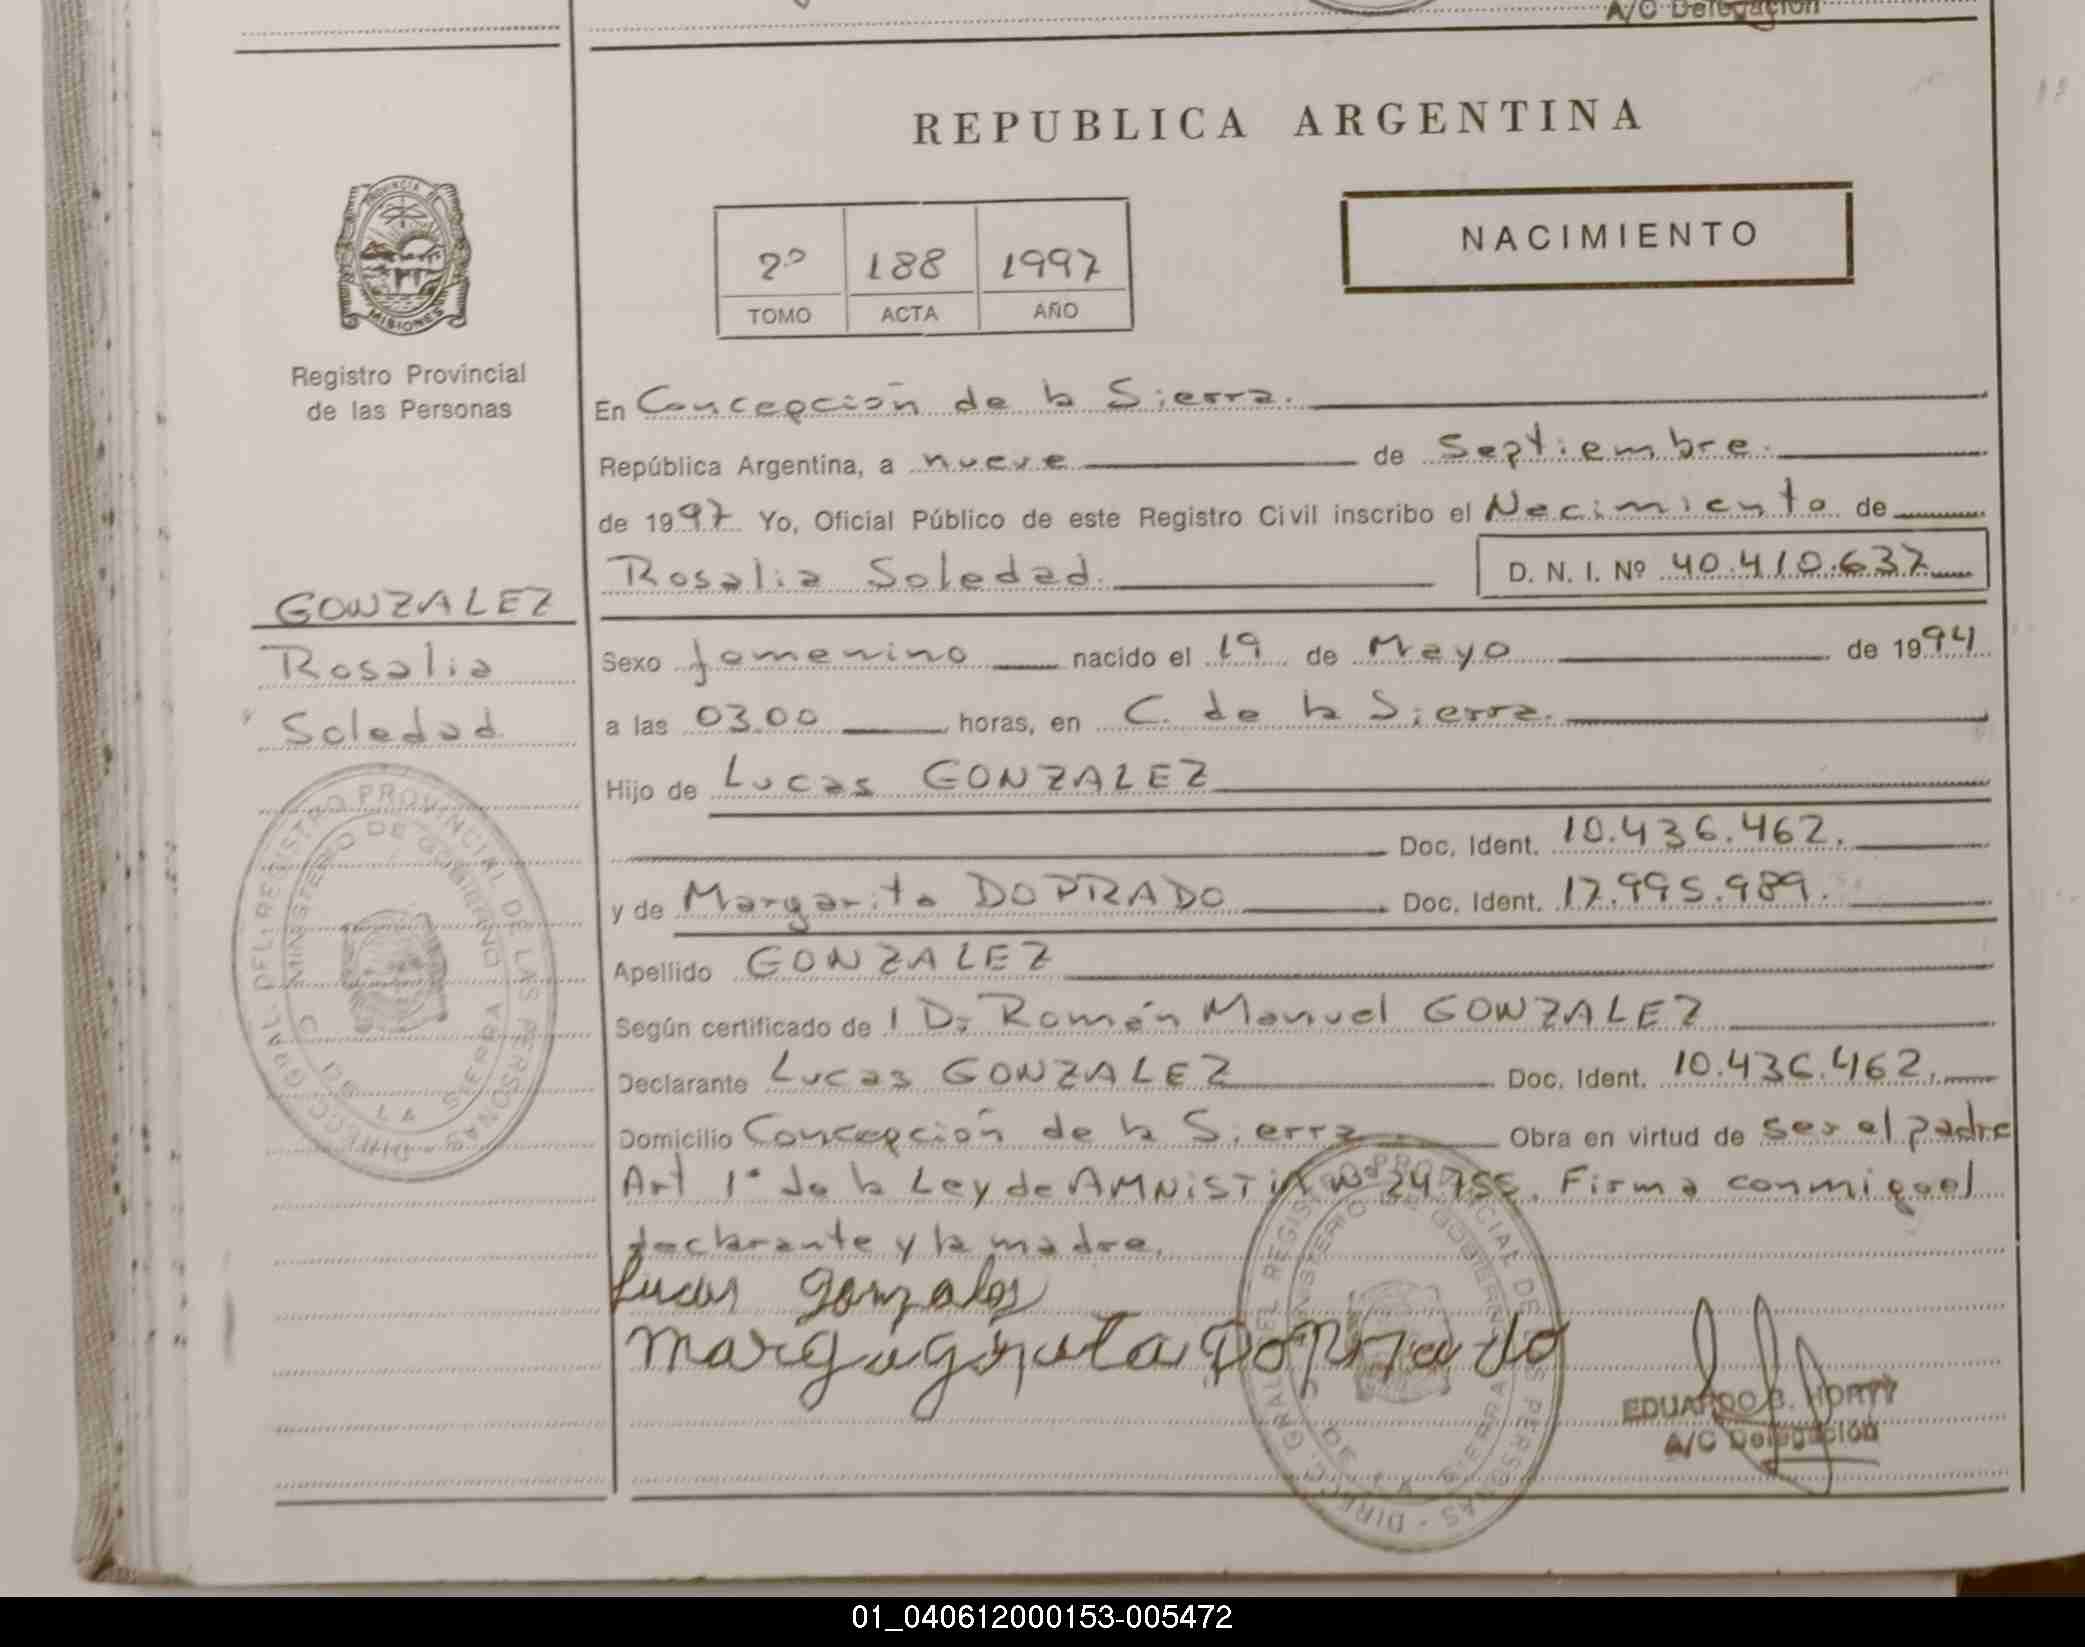 A/C Delegación
REPUBLICA ARGENTINA
PROVINCIA
MISIONES
2º 188 1997
TOMO ACTA AÑO
NACIMIENTO
Registro Provincial
de las Personas
En Concepción de la Sierra.
República Argentina, a nueve de Septiembre.
de 1997 Yo, Oficial Público de este Registro Civil inscribo el Nacimiento de
Rosalia Soledad. D. N. I. Nº 40.410.637
GONZALEZ
Rosalia
Soledad
Sexo femenino nacido el 19 de Mayo de 1994
a las 03.00 horas, en C. de la Sierra.
Hijo de Lucas GONZALEZ
Doc. Ident. 10.436.462.
y de Margarita DOPRADO Doc. Ident. 17.995.989.
Apellido GONZALEZ
Según certificado de 1 Dr Román Manuel GONZALEZ
Declarante Lucas GONZALEZ Doc. Ident. 10.436.462.
Domicilio Concepción de la Sierra Obra en virtud de ser el padre
Art 1º de la Ley de AMNISTIA Nº 24755. Firma conmigo el
declarante y la madre.
Lucas Gonzales
DIRECC. GRAL. DEL REGISTRO PROVINCIAL DE LAS PERSONAS
MINISTERIO DE GOBIERNO
C. DE LA SIERRA
DIRECC. GRAL. DEL REGISTRO PROVINCIAL DE LAS PERSONAS
MINISTERIO DE GOBIERNO
C. DE LA SIERRA
EDUARDO
A/C Delegación
01_040612000153-005472